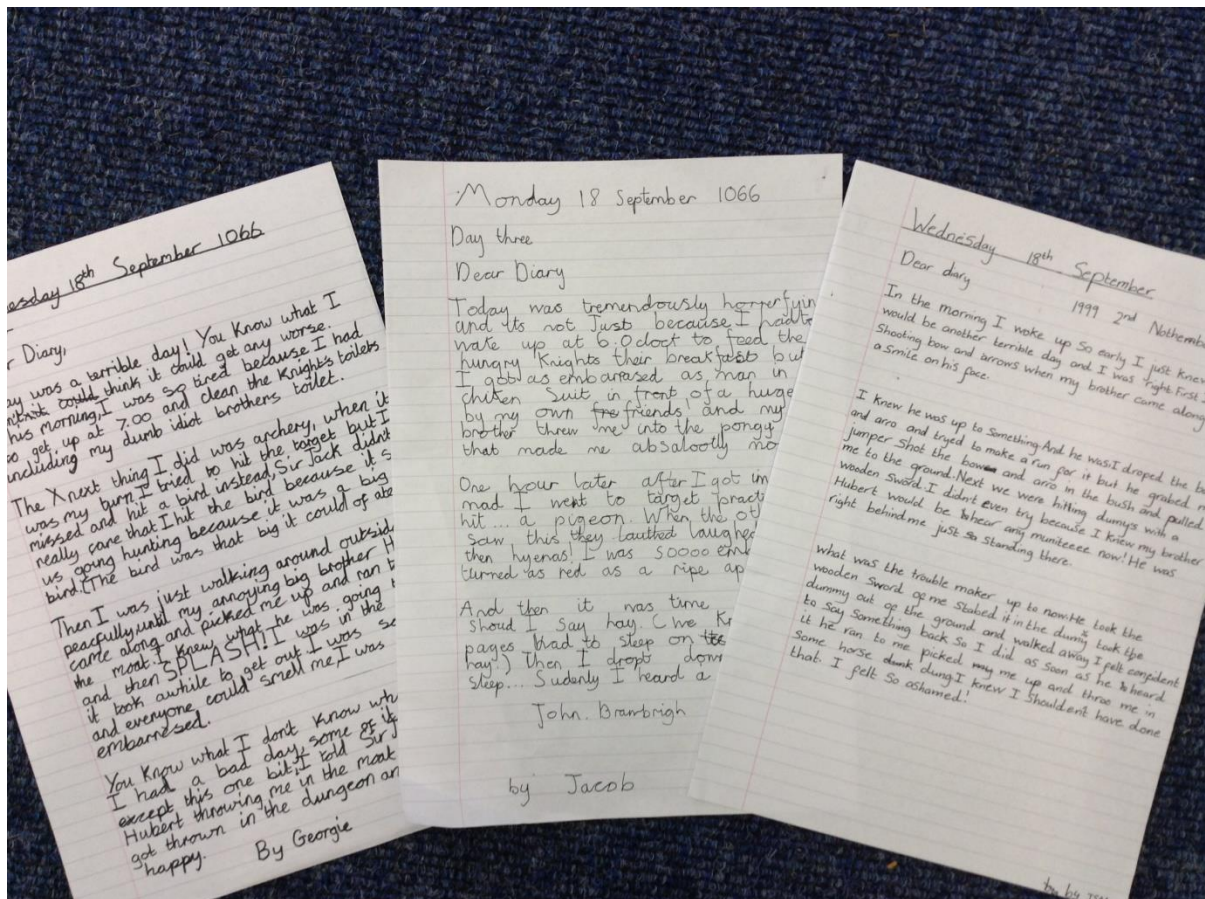 18th September 1066
Diary,
was a terrible day! You know what I
could think it could get any worse.
his morning, I was so tired because I had
to get up at 7.00 and clean the Knight's toilets
including my dumb idiot brothers toilet.
The X next thing I did was archery, when it
was my turn, I tried to hit the target but I
missed and hit a bird instead, Sir Jack didn't
really care that I hit the bird because it s
us going hunting because it was a big
bird. (The bird was that big it could of ate
Then I was just walking around outside
peacfully until my annoying big brother H
came along and picked me up and ran t
the moat. I knew what he was going t
and then SPLASH!! I was in the
it took awhile to get out I was so
and everyone could smell me, I was
embarresed.
You Know what I don't know wh
I had a bad day, some of it
except this one bit, I told Sir J
Hubert throwing me in the moat
got thrown in the dungeon an
happy.
By Georgie
Monday 18 September 1066
Day three
Dear Diary
Today was tremendously horrerfyin
and its not Just because I had t
wake up at 6.0cloct to feed the
hungry Knights their breakfast but
I got as embarrased as man in
chiken Suit in front of a huge
by my own fre friends, and my
brother threw me into the pongy
that made me absalootly mo
One hour later after I got in
mad I went to target practi
hit... a pigeon. When the ot
saw this they lauthed laughed
then hyenas! I was 50000 em
turned as red as a ripe ap
And then it was time
shoud I say hay. (we Kn
pages had to sleep on
hay!) Then I dropt down
sleep... Sudenly I heard a
John. Brambrigh
by Jacob
Wednesday 18th September
Dear diary
1999 2nd Nothembe
In the morning I woke up So early I just knew
would be another terrible day and I was right. First
Shooting bow and arrows when my brother came along
a smile on his face.
I knew he was up to something. And he was. I droped the bo
and arro and tryed to make a run for it but he grabed m
jumper shot the bow and arro in the bush and pulled
me to the ground. Next we were hitting dumys with a
wooden sword. I didn't even try because I knew my brother
Hubert would be hear any muniteeee now! He was
right behind me just so standing there.
what was the trouble maker up to now. He took the
wooden sword of me stabed it in the dumy took the
dummy out of the ground and walked away I felt confident
to say something back So I did as soon as he heard
it he ran to me picked my me up and throo me in
some horse dunk dung. I knew I Shouldent have done
that. I felt So ashamed!
by